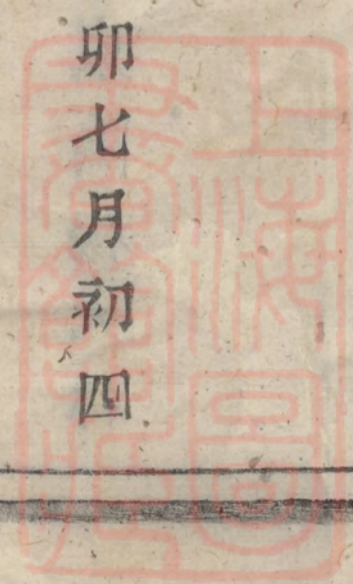 卯七月初四
上海圖
書館藏